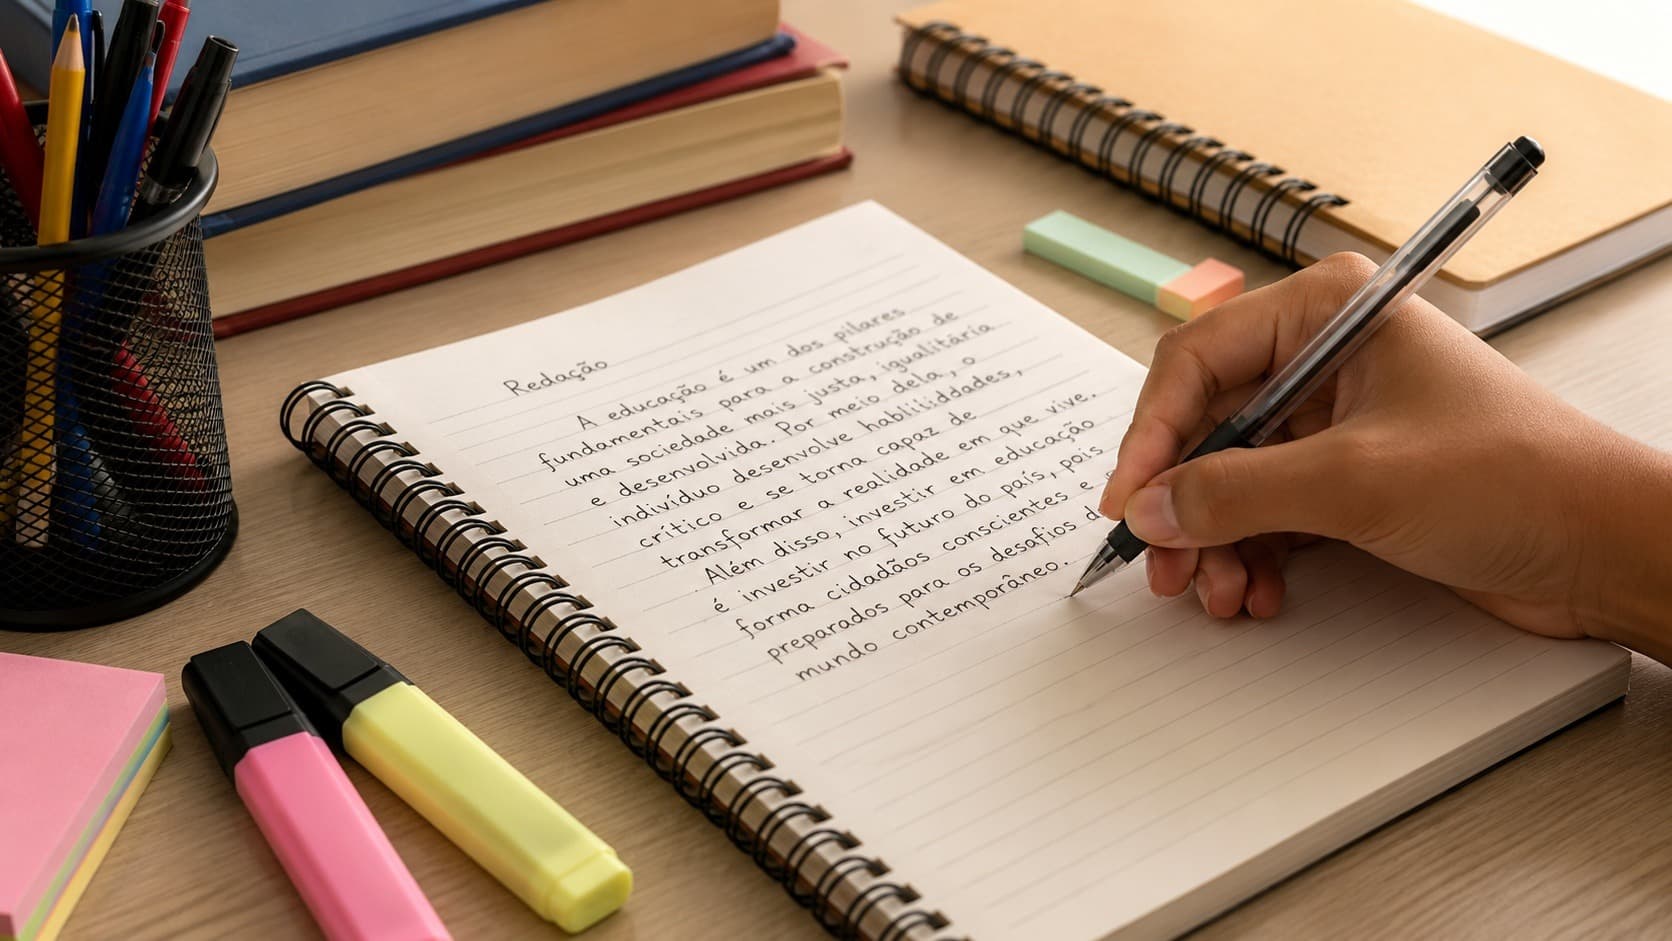 Redação
A educação é um dos pilares
fundamentais para a construção de
uma sociedade mais justa, igualitária
e desenvolvida. Por meio dela, o
indivíduo desenvolve habliiddades,
crítico e se torna capaz de
transformar a realidade em que vive.
Além disso, investir em educação
é investir no futuro do país, pois
forma cidadãos conscientes e
preparados para os desafios
mundo contemporâneo.